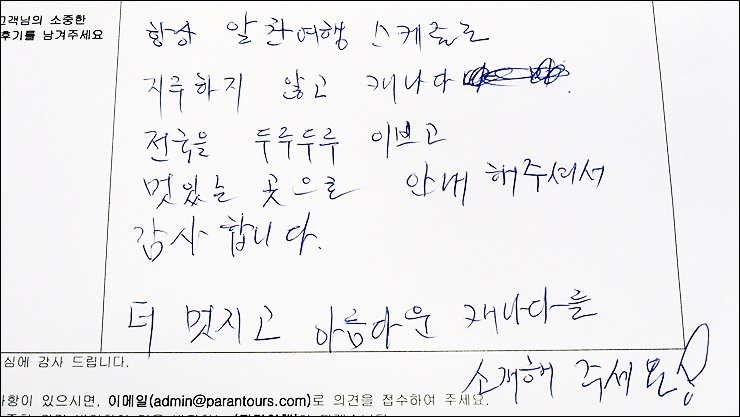 고객님의 소중한
후기를 남겨주세요
항상 알찬여행 스케줄로
지루하지 않고 캐나다
전국을 두루두루 이쁘고
멋있는 곳으로 안내 해주셔서
감사 합니다.
더 멋지고 아름다운 캐나다를
소개해 주세요!
심에 감사 드립니다.
사항이 있으시면, 이메일(admin@parantours.com)로 의견을 접수하여 주세요.